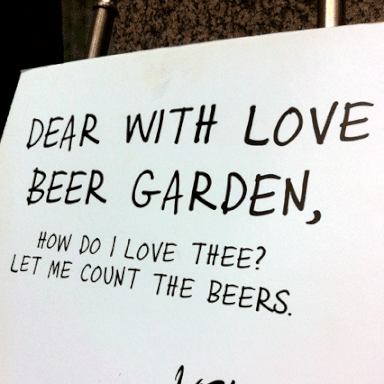 DEAR WITH LOVE
BEER GARDEN,
HOW DO I LOVE THEE?
LET ME COUNT THE BEERS.